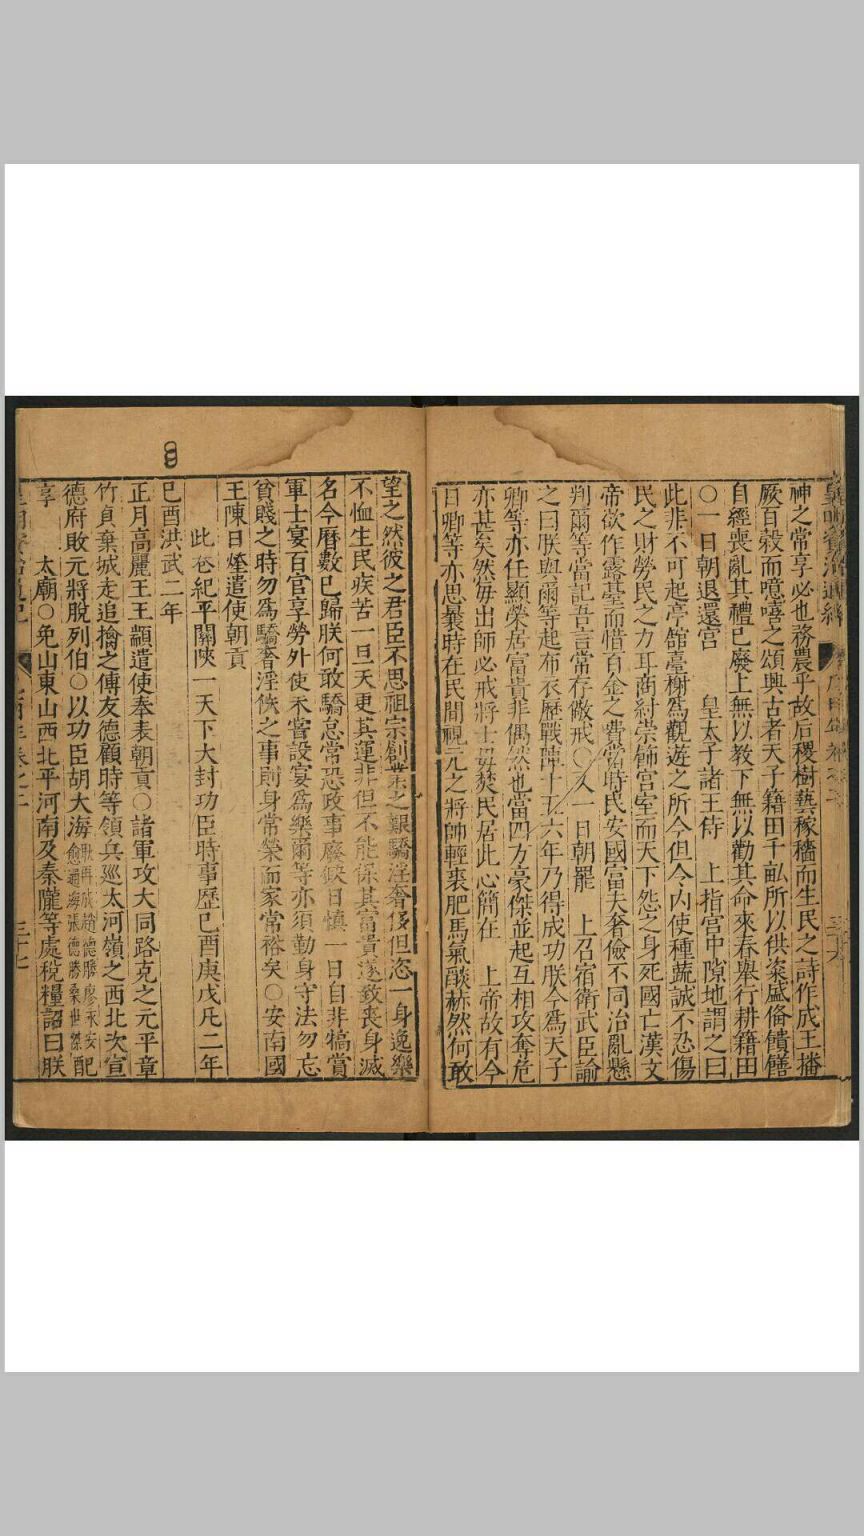 神之常享必也務農乎故后稷樹藝稼穡而生民之詩作成王播
厥百穀而噫嘻之頌興古者天子籍田千畝所以供粢盛俻饋饍
自經喪亂其禮已廢上無以教下無以勸其命來春舉行耕籍田
○一日朝退還宮　皇太子諸王侍　上指宮中隙地謂之曰
此非不可起亭舘臺榭爲觀遊之所今但令内使種蔬誠不忍傷
民之財勞民之力耳商紂崇飾宮室而天下怨之身死國亡漢文
帝欲作露臺而惜百金之費當時民安國富夫奢儉不同治亂懸
判爾等當記吾言常存儆戒○又一日朝罷　上召宿衛武臣諭
之曰朕與爾等起布衣歷戰陣十五六年乃得成功朕今爲天子
卿等亦任顯榮居富貴非偶然也當四方豪傑並起互相攻奪危
亦甚矣然毎出師必戒將士毋焚民居此心簡在　上帝故有今
日卿等亦思曩時在民間視元之將帥輕裘肥馬氣醆赫然何敢
望之然彼之君臣不思祖宗創業之艱驕淫奢侈但恣一身逸樂
不恤生民疾苦一旦天更其運非但不能保其富貴遂致喪身滅
名今曆數已歸朕何敢驕怠常恐政事廢毀日慎一日自非犒賞
軍士宴百官享勞外使未嘗設宴爲樂爾等亦須勤身守法勿忘
貧賤之時勿爲驕奢淫佚之事則身常榮而家常裕矣○安南國
王陳日煃遣使朝貢
此卷紀平關陝一天下大封功臣時事歷己酉庚戌凡二年
己酉洪武二年
正月高麗王王顓遣使奉表朝貢○諸軍攻大同路克之元平章
竹貞棄城走追擒之傅友德顧時等領兵巡太河嶺之西北次宣
德府敗元將脫列伯○以功臣胡大海耿再成趙德勝廖永安俞通海張德勝桑世傑配
享　太廟○免山東山西北平河南及秦隴等處稅糧詔曰朕